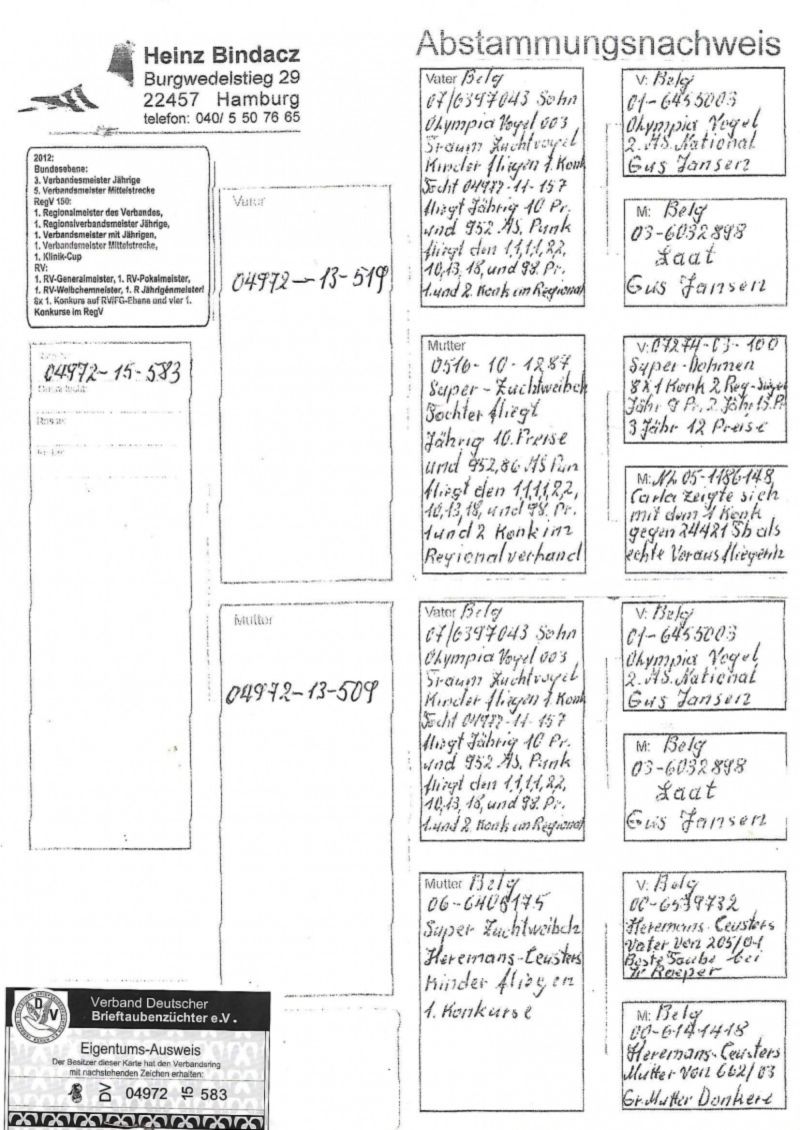 Heinz Bindacz
Burgwedelstieg 29
22457 Hamburg
telefon: 040/ 5 50 76 65
Abstammungsnachweis
2012:
Bundesebene:
3. Verbandesmeister Jährige
5. Verbandsmeister Mittelstrecke
RegV 150:
1. Regionalmeister des Verbandes,
1. Regionalverbandsmeister Jährige,
1. Verbandsmeister mit Jährigen,
1. Verbandsmeister Mittelstrecke,
1. Klinik-Cup
RV:
1. RV-Generalmeister, 1. RV-Pokalmeister,
1. RV-Weibchenmeister, 1. R Jährigenmeister!
8x 1. Konkurs auf RV/FG-Ebene und vier 1.
Konkurse im RegV
04972-15-583
Vater
04972-13-519
Mutter
04972-13-509
Vater Belg
07/6397043 Sohn
Olympia Vogel 003
Traum Zuchtvogel
Kinder fliegen 1. Konk
Tocht 04972-11-157
fliegt Jährig 10 Pr.
und 952 AS. Punk
fliegt den 1,1,1,2,2,
10,13,18, und 98. Pr.
1. und 2. Konk im Regional
Mutter
0516-10-1287
Super-Zuchtweibch
Tochter fliegt
Jährig 10. Preise
und 952,86 AS Pun
fliegt den 1,1,1,2,2,
10,13,18, und 98. Pr.
1 und 2 Konk im
Regionalverband
Vater Belg
07/6397043 Sohn
Olympia Vogel 003
Traum Zuchtvogel
Kinder fliegen 1 Konk
Tocht 04972-11-157
fliegt Jährig 10 Pr.
und 952 AS. Punk
fliegt den 1,1,1,2,2,
10,13,18, und 98. Pr.
1. und 2. Konk im Regional
Mutter Belg
06-6408175
Super Zuchtweibch
Heremans-Ceusters
Kinder fliegen
1. Konkurse
V: Belg
01-6455003
Olympia Vogel
2. AS. National
Gus Jansen
M: Belg
03-6032898
Laat
Gus Jansen
V: 07274-03-100
Super-Dohmen
8X1 Konk 2 Reg-Sieger
Jähr 9 Pr. 2. Jähr 13. Pr
3 Jähr 12 Preise
M: NL 05-1186148
Carla zeigte sich
mit dem 1 Konk
gegen 24421 Tb als
echte Vorausfliegerin
V: Belg
01-6455003
Olympia Vogel
2. AS. National
Gus Jansen
M: Belg
03-6032898
Laat
Gus Jansen
V: Belg
00-6539732
Heremans-Ceusters
Vater von 205/04
Beste Taube bei
Roeper
M: Belg
00-6141418
Heremans-Ceusters
Mutter von 662/03
Gr. Mutter Donkere
Verband Deutscher
Brieftaubenzüchter e.V.
Eigentums-Ausweis
Der Besitzer dieser Karte hat den Verbandsring
mit nachstehenden Zeichen erhalten:
DV 04972 15 583